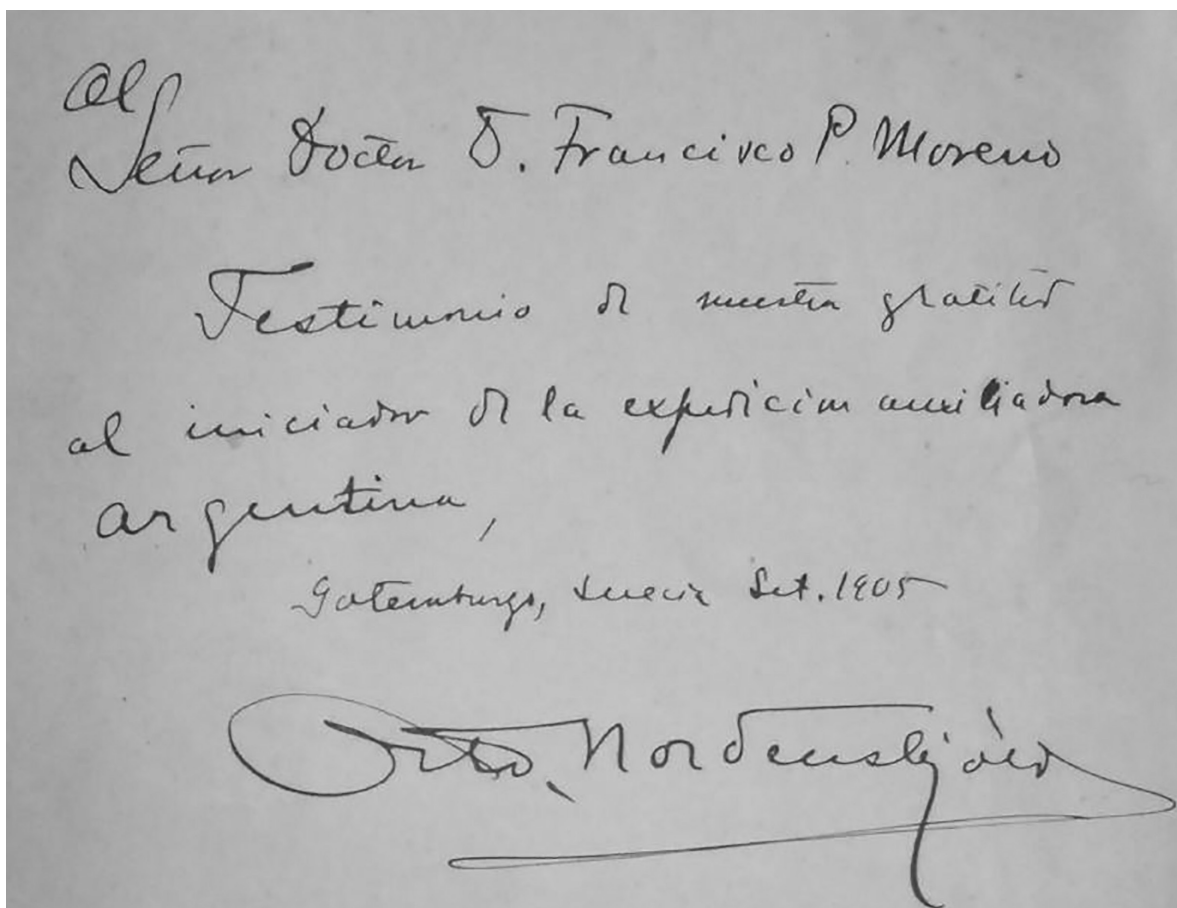 Al
Señor Doctor D. Francisco P. Moreno
Testimonio de nuestra gratitud
al iniciador de la expedicion auxiliadora
argentina,
Gotemburgo, Suecia Set. 1905
Otto Nordenskjöld